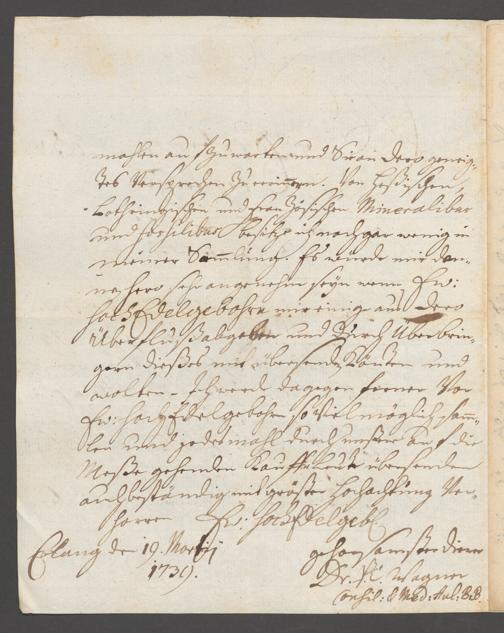 mahlen auf zu warten und Sie an Dero geneig-
tes Versprechen zu erinnern. Von Hessischen,
Lothringischen und französischen Mineralibus
und fossilibus besitze ich noch gar wenig in
meiner Sammlung. Es würde mir da-
nenhero sehr angenehm seyn wenn Ew:
HochEdelgebohrn mir einig aus Dero
Überfluß abgeben und durch Überbrin-
gern dießes mit übersenden könten und
wolten. Ich werde dagegen ferner vor
Ew: HochEdelgebohrn so viel möglich sam-
len und jedesmahl durch unsere auf die
Meße gehenden Kauffleute übersenden
auch beständig mit gröster Hochachtung ver-
harren Ew: HochEdelgeb.
Erlang de 19. Martij
1739.
gehorsamster Diener
Dr. Wagner
Consil: & Med: Aul: B:B